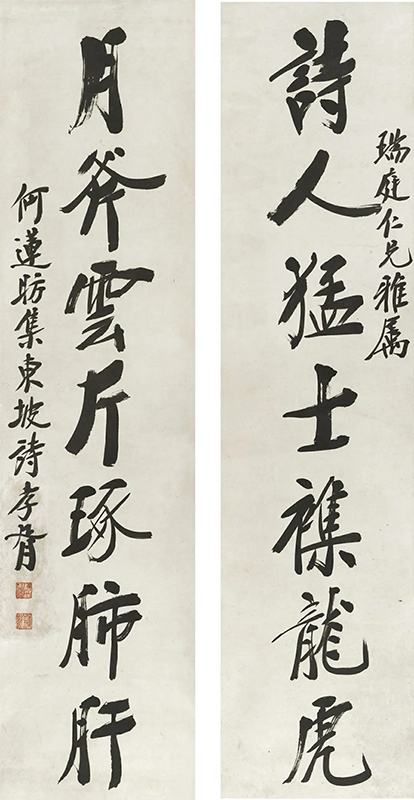 瑞庭仁兄雅属
詩人猛士襍龍虎
月斧雲斤琢肺肝
何蓮昉集東坡詩孝胥